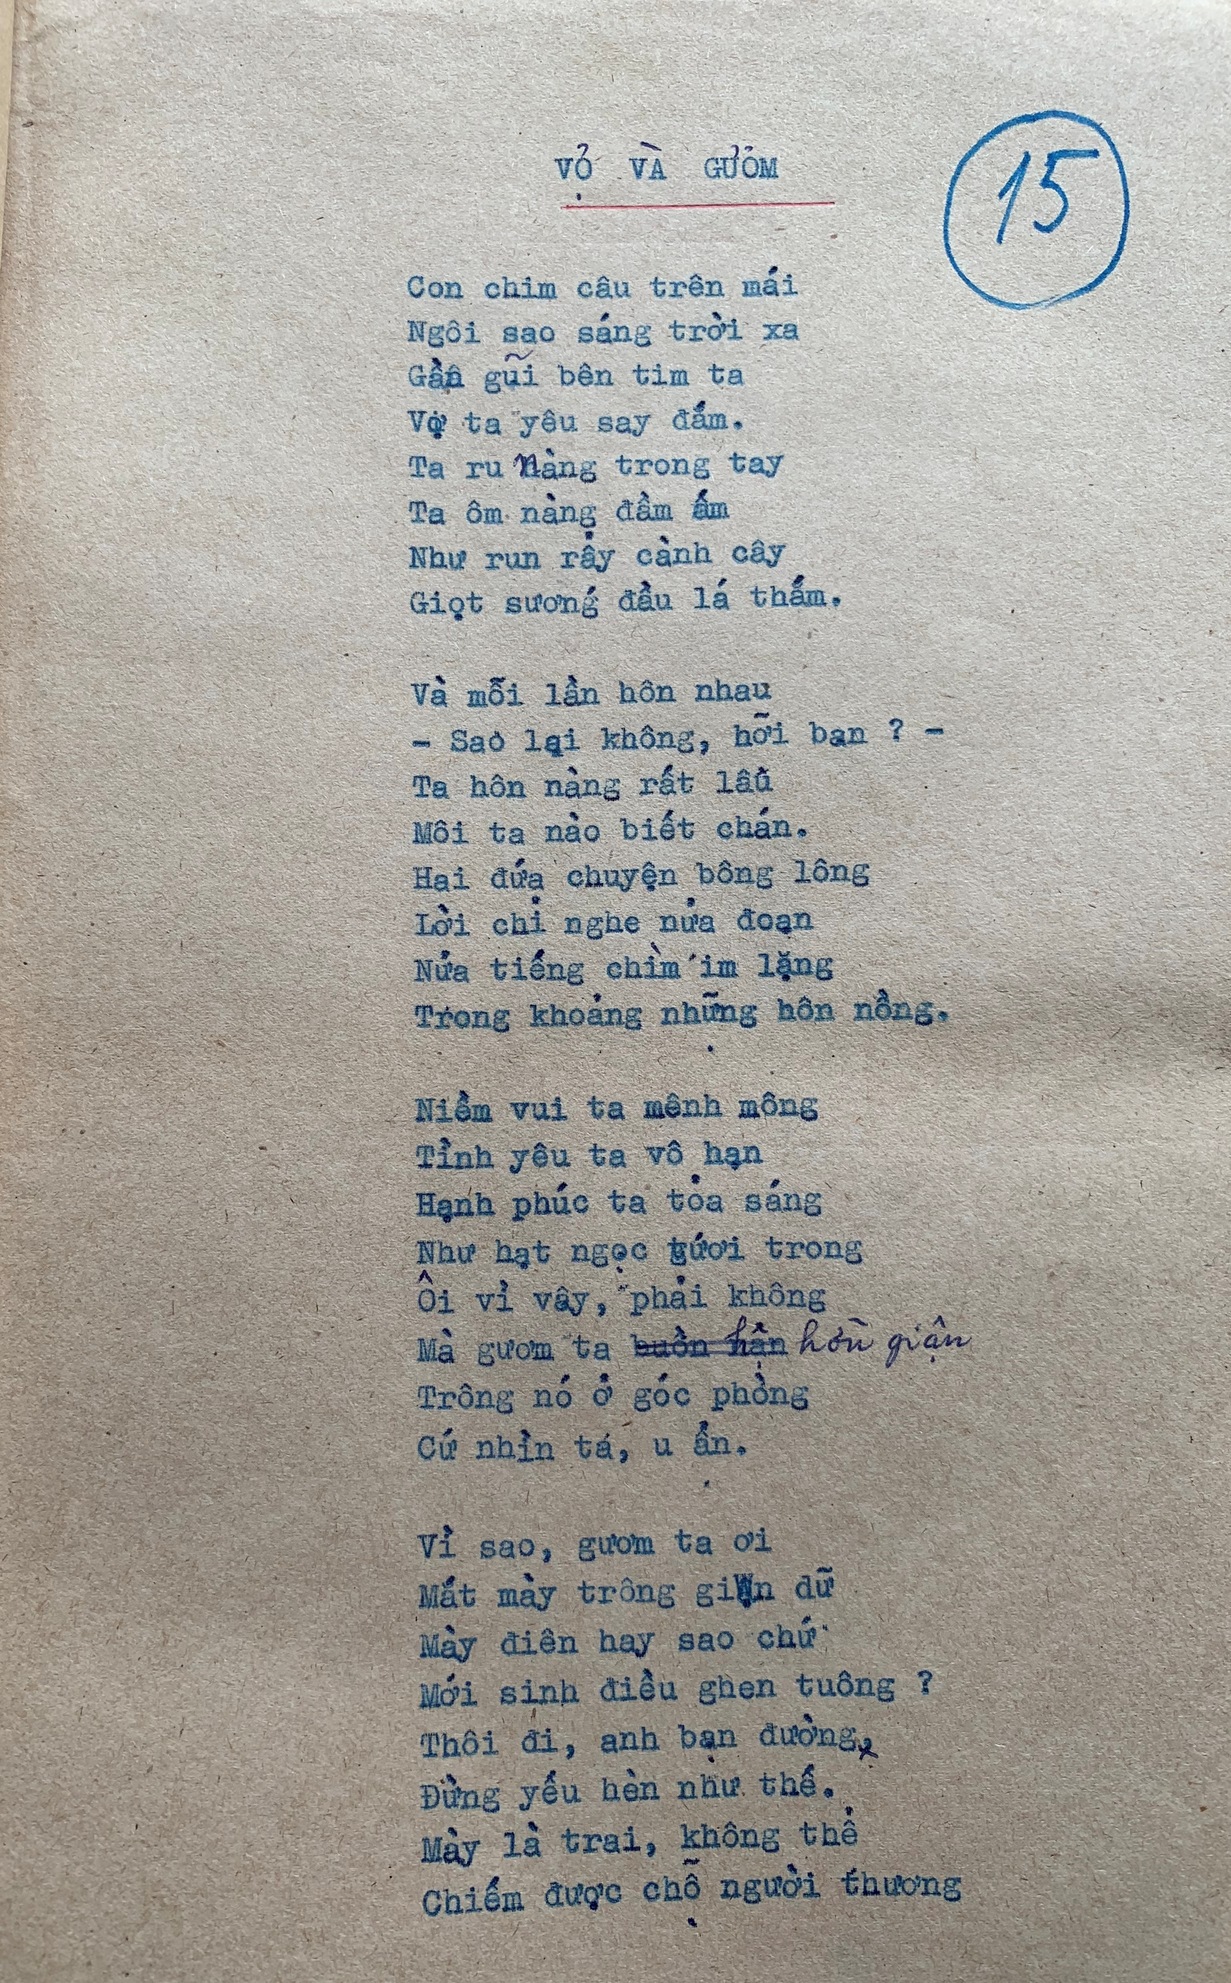 VỢ VÀ GƯƠM
15
Con chim câu trên mái
Ngôi sao sáng trời xa
Gần gũi bên tim ta
Vợ ta yêu say đắm.
Ta ru nàng trong tay
Ta ôm nàng đầm ấm
Như run rẩy cành cây
Giọt sương đầu lá thắm.
Và mỗi lần hôn nhau
- Sao lại không, hỡi bạn ? -
Ta hôn nàng rất lâu
Môi ta nào biết chán.
Hai đứa chuyện bông lông
Lời chỉ nghe nửa đoạn
Nửa tiếng chìm im lặng
Trong khoảng những hôn nồng.
Niềm vui ta mênh mông
Tình yêu ta vô hạn
Hạnh phúc ta tỏa sáng
Như hạt ngọc tươi trong
Ôi vì vậy, phải không
Mà gươm ta buồn hận hờn giận
Trông nó ở góc phòng
Cứ nhìn ta, u ẩn.
Vì sao, gươm ta ơi
Mắt mày trông giận dữ
Mày điên hay sao chứ
Mới sinh điều ghen tuông ?
Thôi đi, anh bạn đường,
Đừng yếu hèn như thế.
Mày là trai, không thể
Chiếm được chỗ người thương